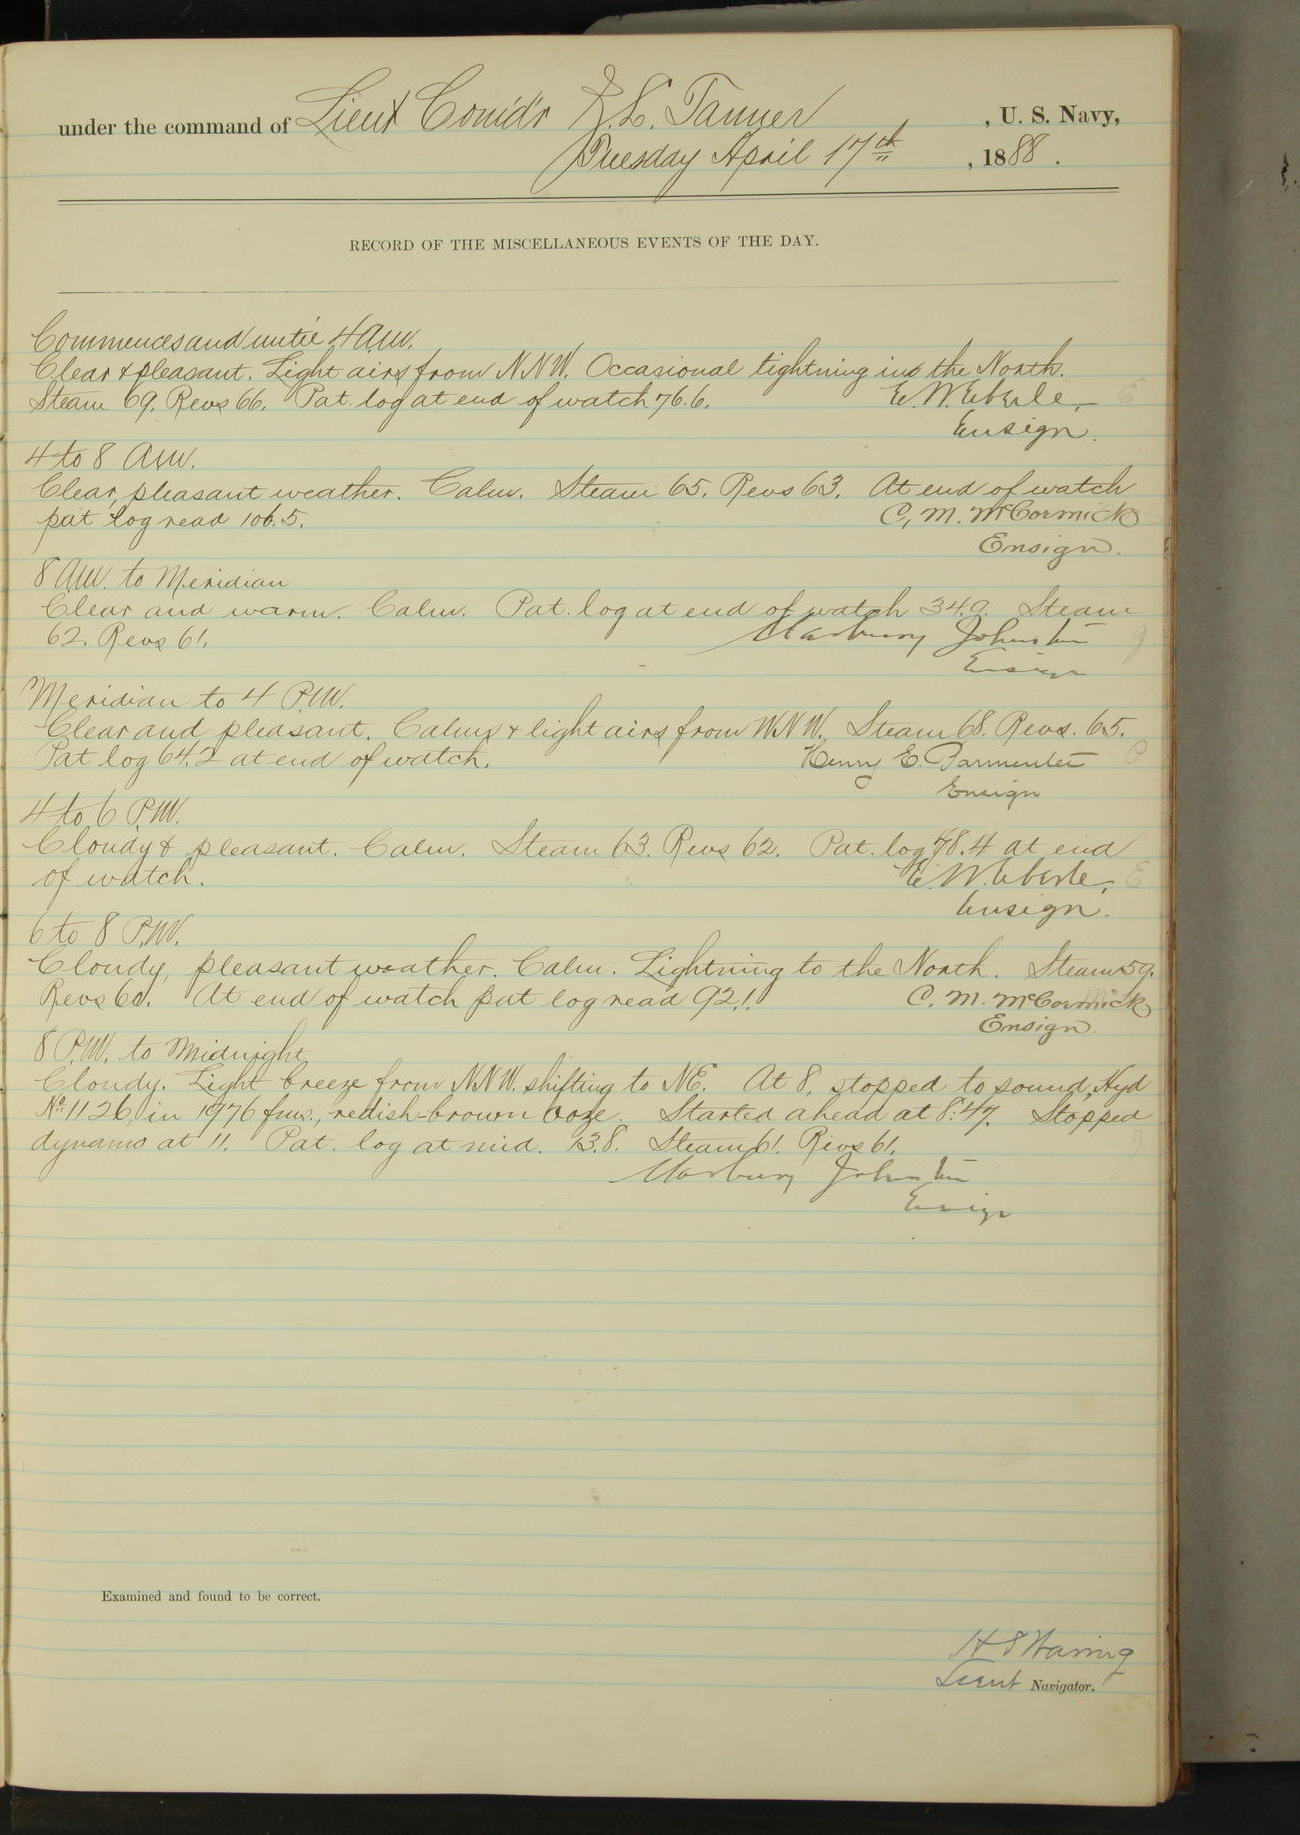 under the command of Lieut Comd'r Z. L. Tanner, U. S. Navy,
Tuesday April 17th, 1888.
RECORD OF THE MISCELLANEOUS EVENTS OF THE DAY.
Commences and until 4 A.M.
Clear & pleasant. Light airs from N.N.W. Occasional lightning in the North.
Steam 69. Revs 66. Pat. log at end of watch 76.6. E. W. Eberle,
Ensign.
4 to 8 A.M.
Clear, pleasant weather. Calm. Steam 65. Revs 63. At end of watch
pat log read 106.5. C. M. McCormick
Ensign.
8 A.M. to Meridian
Clear and warm. Calm. Pat. log at end of watch 34.9. Steam
62. Revs 61. Marbury Johnston
Ensign
Meridian to 4 P.M.
Clear and pleasant. Calms & light airs from W.N.W. Steam 68. Revs. 65.
Pat log 64.2 at end of watch. Henry E. Parmenter
Ensign
4 to 6 P.M.
Cloudy & pleasant. Calm. Steam 63. Revs 62. Pat. log 78.4 at end
of watch. E. W. Eberle,
Ensign.
6 to 8 P.M.
Cloudy, pleasant weather. Calm. Lightning to the North. Steam 59.
Revs 60. At end of watch pat log read 92.1. C. M. McCormick
Ensign.
8 P.M. to Midnight
Cloudy. Light breeze from N.N.W. shifting to NE. At 8, stopped to sound, Hyd
No. 1126, in 1976 fms., redish-brown ooze. Started ahead at 8:47. Stopped
dynamo at 11. Pat. log at mid. 13.8. Steam 61. Revs 61.
Marbury Johnston
Ensign
Examined and found to be correct.
H S Waring
Lieut Navigator.